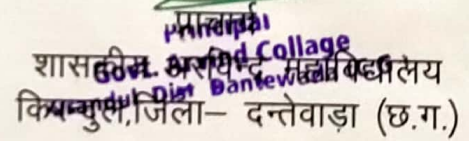 प्राचार्य
Principal
शासकीय अरविन्द महाविद्यालय
Govt. Arvind Collage
किरन्दुल, जिला– दन्तेवाड़ा (छ.ग.)
Kirandul Dist Dantewada